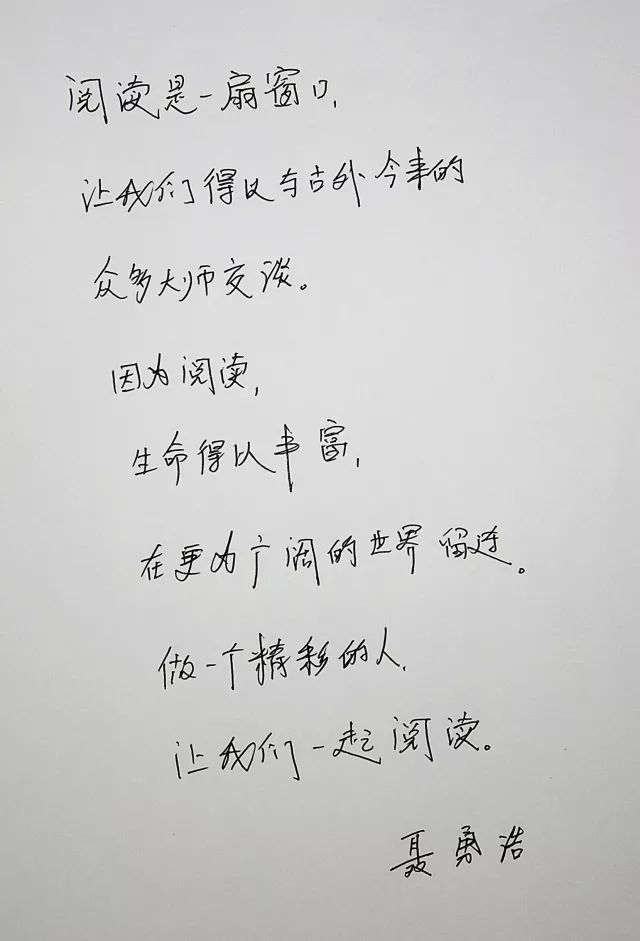 阅读是一扇窗口,
让我们得以与古外今来的
众多大师交谈。
因为阅读,
生命得以丰富,
在更为广阔的世界留连。
做一个精彩的人,
让我们一起阅读。
聂勇浩